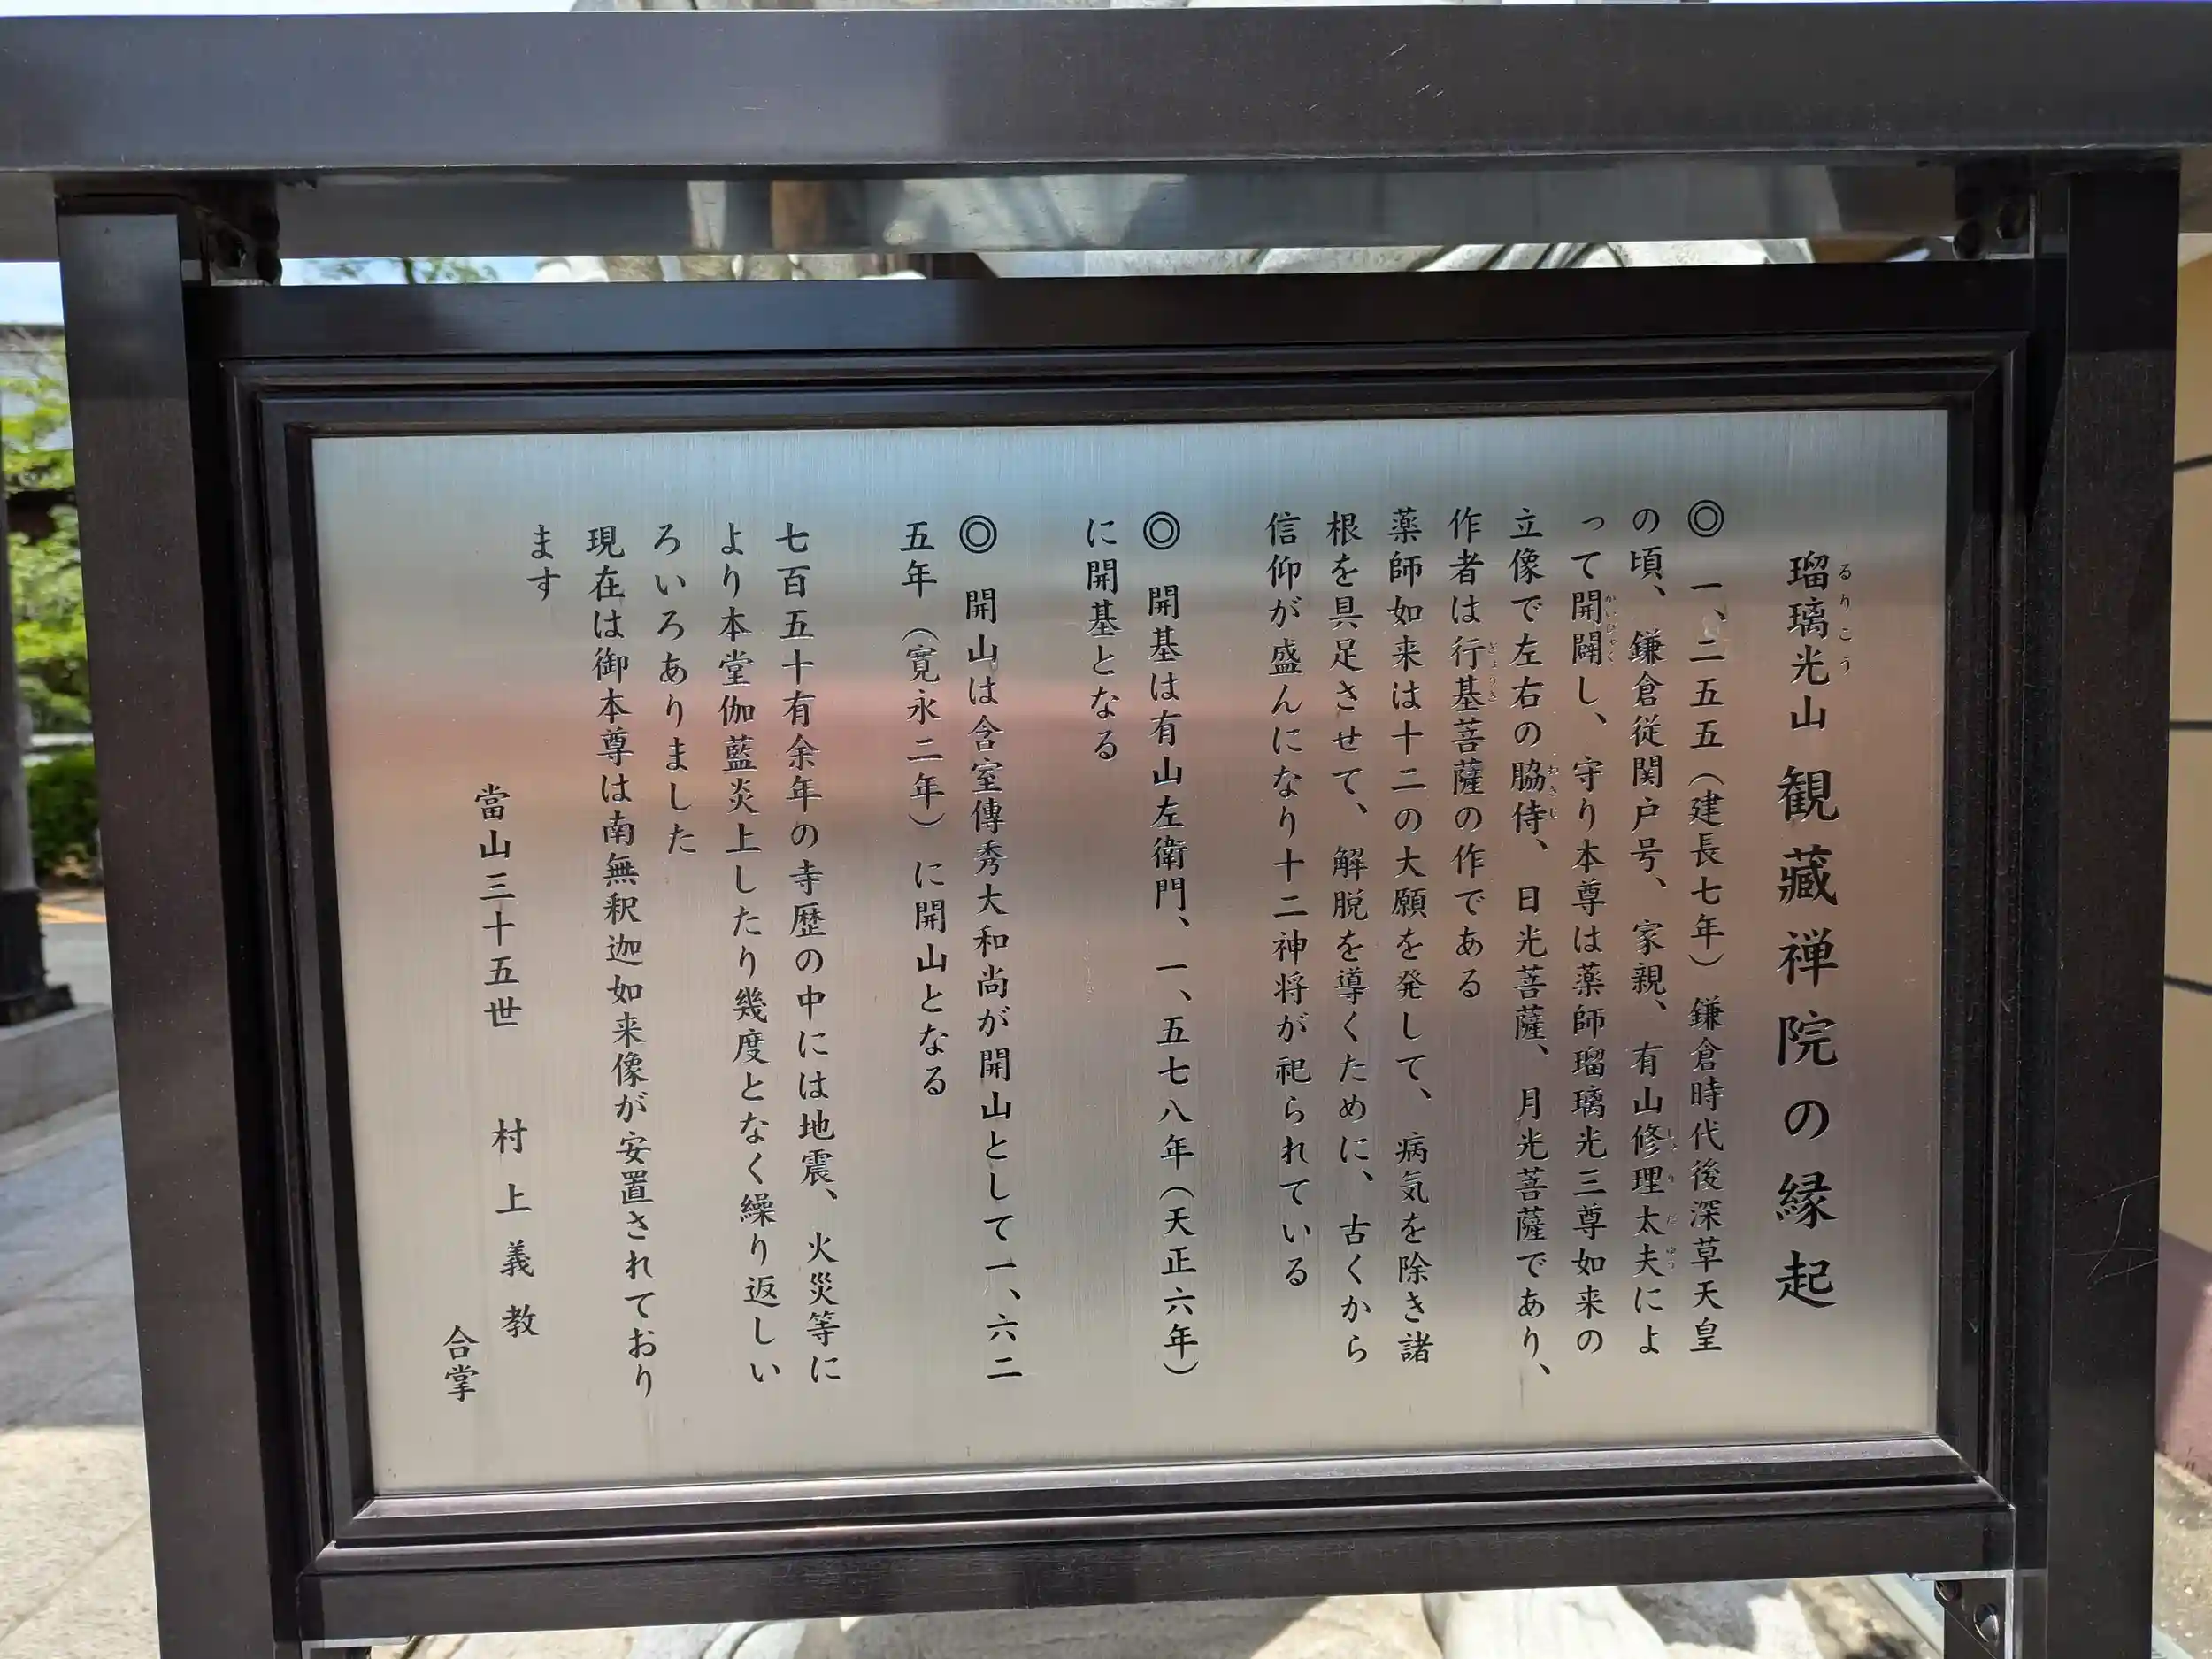 瑠璃光山 観藏禅院の縁起
◎ 一、二五五（建長七年）鎌倉時代後深草天皇
の頃、鎌倉従関戸号、家親、有山修理太夫によ
って開闢し、守り本尊は薬師瑠璃光三尊如来の
立像で左右の脇侍、日光菩薩、月光菩薩であり、
作者は行基菩薩の作である
薬師如来は十二の大願を発して、病気を除き諸
根を具足させて、解脱を導くために、古くから
信仰が盛んになり十二神将が祀られている
◎ 開基は有山左衛門、一、五七八年（天正六年）
に開基となる
◎ 開山は含室傳秀大和尚が開山として一、六二
五年（寛永二年）に開山となる
七百五十有余年の寺歴の中には地震、火災等に
より本堂伽藍炎上したり幾度となく繰り返しい
ろいろありました
現在は御本尊は南無釈迦如来像が安置されており
ます
當山三十五世 村上義教
合掌